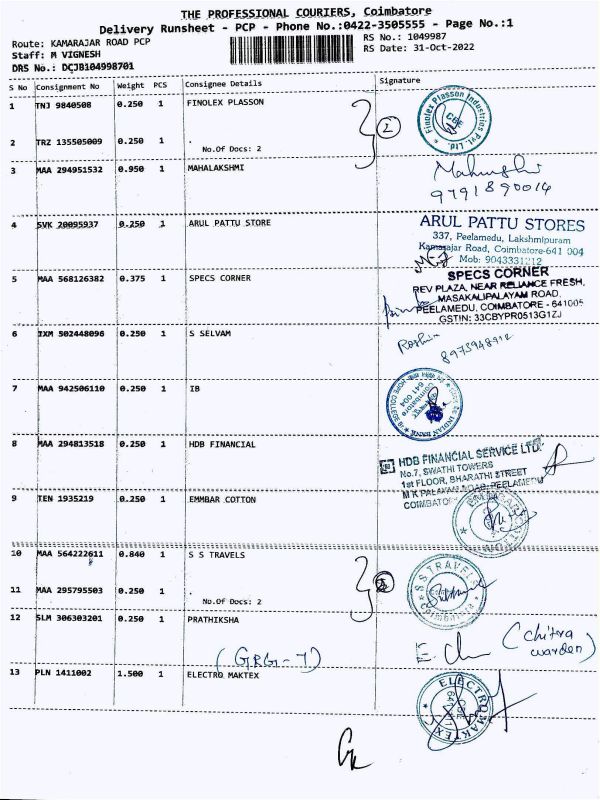 THE PROFESSIONAL COURIERS, Coimbatore
Delivery Runsheet - PCP - Phone No.:0422-3505555 - Page No.:1
Route: KAMARAJAR ROAD PCP
RS No.: 1049987
Staff: M VIGNESH
RS Date: 31-Oct-2022
DRS No.: DCJB104998701
S No Consignment No Weight PCS Consignee Details Signature
1 TNJ 9840508 0.250 1 FINOLEX PLASSON
Finolex Plasson Industries Pvt. Ltd.
CBE
2
2 TRZ 135505009 0.250 1 .
No.Of Docs: 2
3 MAA 294951532 0.950 1 MAHALAKSHMI
9791890014
4 SVK 20095937 0.250 1 ARUL PATTU STORE
ARUL PATTU STORES
337, Peelamedu, Lakshmipuram
Kamarajar Road, Coimbatore-641 004
Mob: 9043331212
5 MAA 568126382 0.375 1 SPECS CORNER
SPECS CORNER
REV PLAZA, NEAR RELIANCE FRESH,
MASAKALIPALAYAM ROAD,
PEELAMEDU, COIMBATORE - 641005
GSTIN: 33CBYPR0513G1ZJ
6 IXM 502448096 0.250 1 S SELVAM
7 MAA 942506110 0.250 1 IB
INDIAN BANK
Coimbatore
641 004
8 MAA 294813518 0.250 1 HDB FINANCIAL
HDB FINANCIAL SERVICE LTD.
No.7, SWATHI TOWERS
1st FLOOR, BHARATHI STREET
M K PALAYAM ROAD, PEELAMEDU
COIMBATORE
9 TEN 1935219 0.250 1 EMMBAR COTTON
10 MAA 564222611 0.840 1 S S TRAVELS
S S TRAVELS
Coimbatore
2
11 MAA 295795503 0.250 1 .
No.Of Docs: 2
12 SLM 306303201 0.250 1 PRATHIKSHA
(GRG-7)
(chitra
warden)
13 PLN 1411002 1.500 1 ELECTRO MAKTEX
ELECTRO MAKTEX
CBE